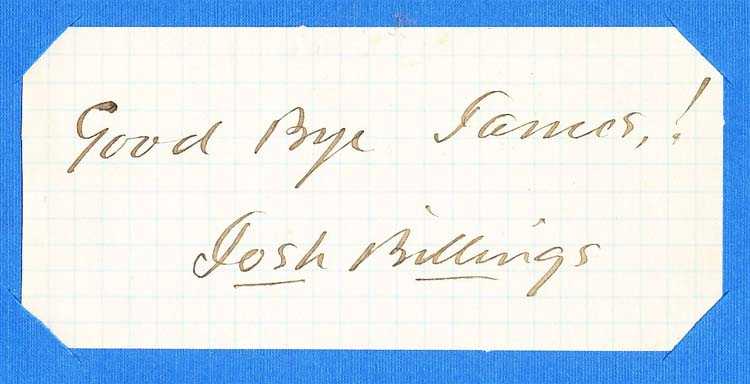 Good Bye James,!
Josh Billings